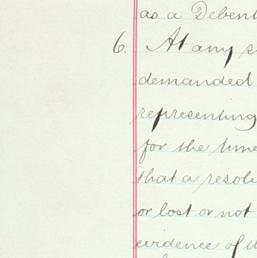 as a Debent
6. At any
demanded
representing
for the time
that a resolu
or lost or not
evidence of